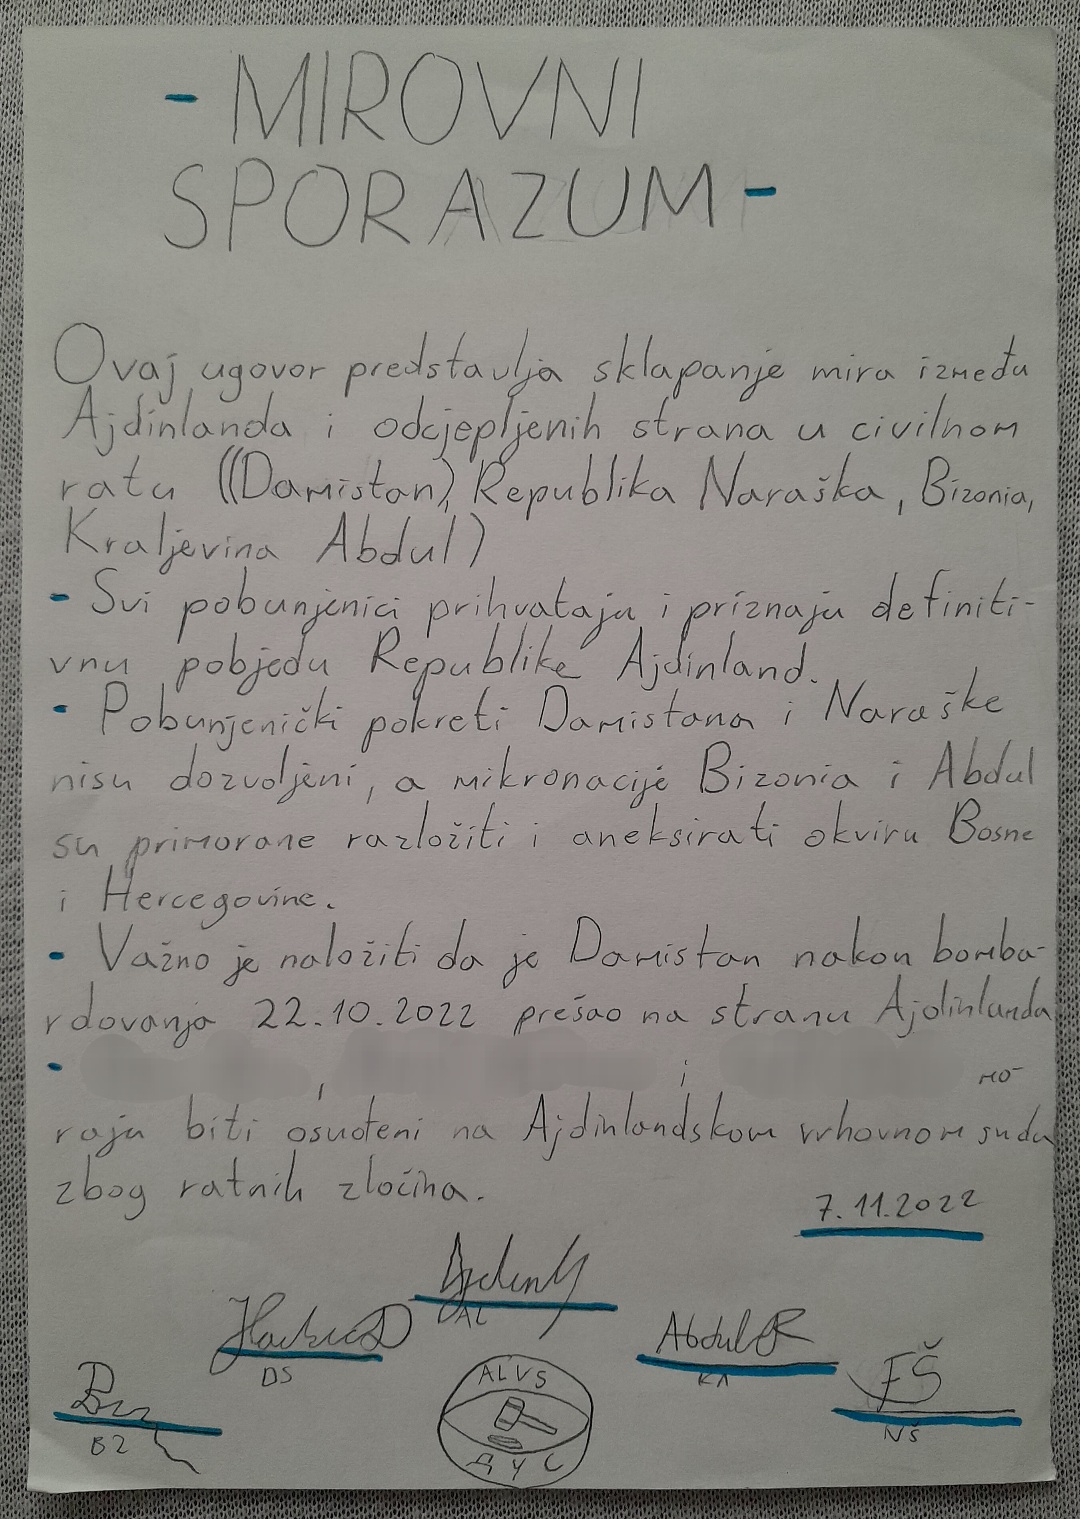 - MIROVNI
SPORAZUM -
Ovaj ugovor predstavlja sklapanje mira između
Ajdinlanda i odcjepljenih strana u civilnom
ratu ((Damistan), Republika Naraška, Bizonia,
Kraljevina Abdul)
- Svi pobunjenici prihvataju i priznaju definiti-
vnu pobjedu Republike Ajdinland.
- Pobunjenički pokreti Damistana i Naraške
nisu dozvoljeni, a mikronacije Bizonia i Abdul
su primorane razložiti i aneksirati okviru Bosne
i Hercegovine.
- Važno je naložiti da je Damistan nakon bomba-
rdovanja 22.10.2022 prešao na stranu Ajdinlanda
- , i mo-
raju biti osuđeni na Ajdinlandskom vrhovnom sudu
zbog ratnih zločina.
7.11.2022
AL
DS
Abdul R
KA
FŠ
NŠ
BZ
ALVS
АУС